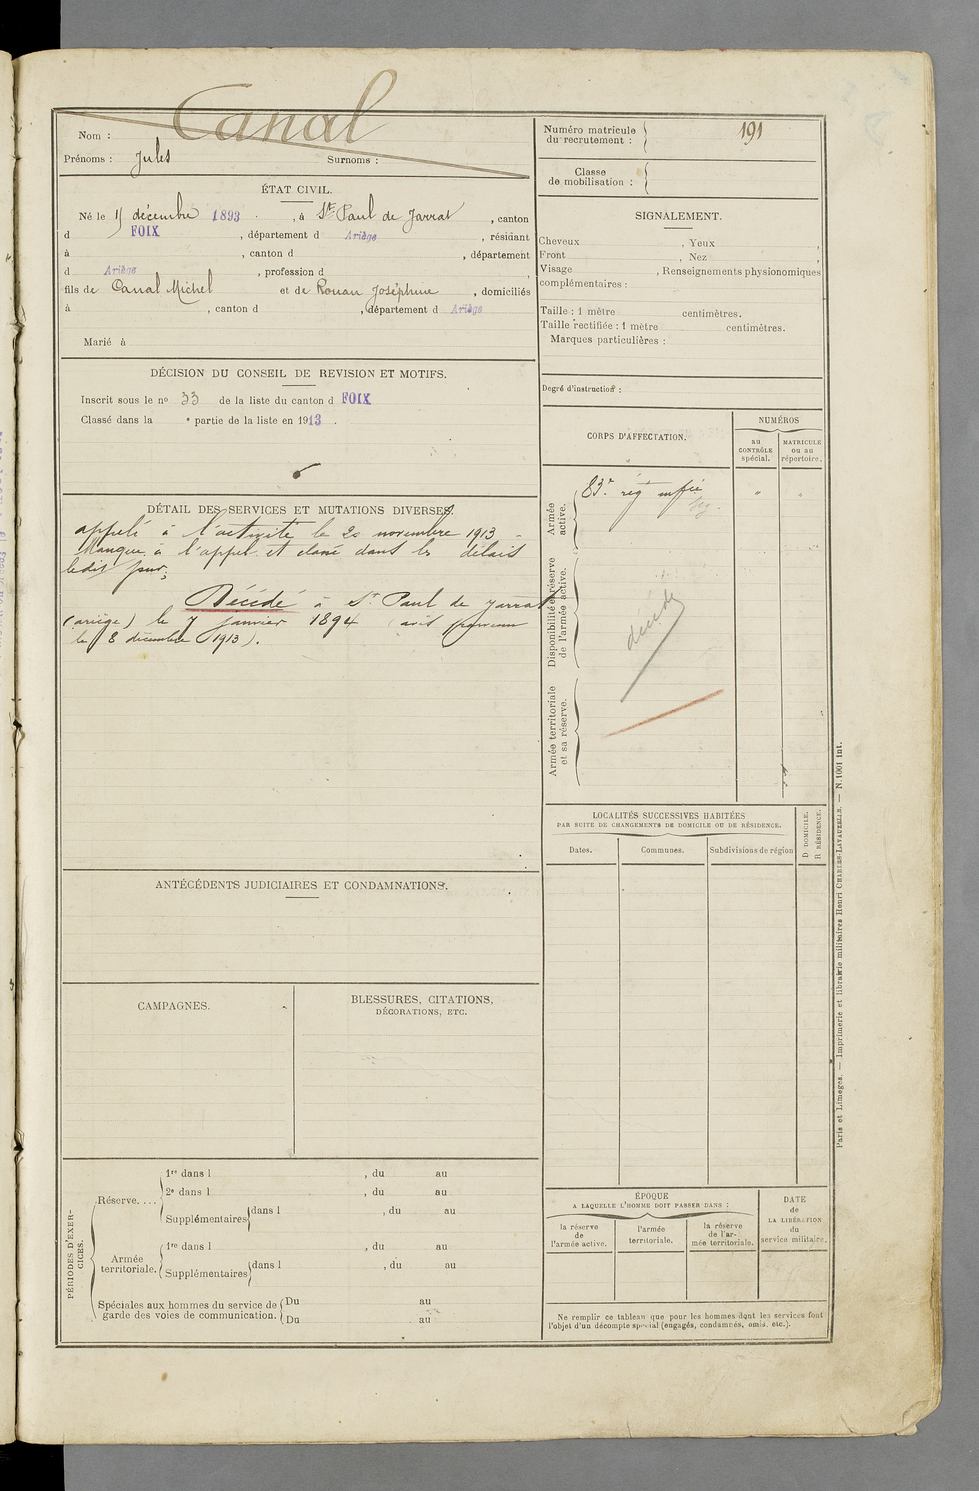 Canal
Nom :
Prénoms : Jules Surnoms :
ÉTAT CIVIL.
Né le 15 décembre 1893, à St Paul de Jarrat, canton
d FOIX, département d Ariège, résidant
à , canton d , département
d Ariège, profession d ,
fils de Canal Michel et de Rouan Joséphine, domiciliés
à , canton d , département d Ariège
Marié à
DÉCISION DU CONSEIL DE REVISION ET MOTIFS.
Inscrit sous le no 33 de la liste du canton d FOIX
Classé dans la e partie de la liste en 1913.
DÉTAIL DES SERVICES ET MUTATIONS DIVERSES.
appelé à l'activité le 20 novembre 1913 -
Manque à l'appel et classé dans les délais
ledit jour;
Décédé à St Paul de Jarrat
(ariège) le 7 janvier 1894 (avis
le 8 décembre 1913).
ANTÉCÉDENTS JUDICIAIRES ET CONDAMNATIONS.
CAMPAGNES.
BLESSURES, CITATIONS,
DÉCORATIONS, ETC.
PÉRIODES D'EXER-
CICES.
Réserve....
1re dans l , du au
2e dans l , du au
Supplémentaires dans l , du au
Armée
territoriale.
1re dans l , du au
Supplémentaires dans l , du au
Spéciales aux hommes du service de
garde des voies de communication.
Du au
Du au
Numéro matricule
du recrutement : 191
Classe
de mobilisation :
SIGNALEMENT.
Cheveux , Yeux ,
Front , Nez ,
Visage , Renseignements physionomiques
complémentaires :
Taille : 1 mètre centimètres.
Taille rectifiée : 1 mètre centimètres.
Marques particulières :
Degré d'instruction :
CORPS D'AFFECTATION.
NUMÉROS
au
CONTRÔLE
spécial.
MATRICULE
ou au
répertoire.
Armée
active.
83e rég infie
" "
Disponibilité et réserve
de l'armée active.
décédé
Armée territoriale
et sa réserve.
LOCALITÉS SUCCESSIVES HABITÉES
PAR SUITE DE CHANGEMENTS DE DOMICILE OU DE RÉSIDENCE.
D DOMICILE.
R RÉSIDENCE.
Dates. Communes. Subdivisions de région
ÉPOQUE
A LAQUELLE L'HOMME DOIT PASSER DANS :
la réserve
de
l'armée active.
l'armée
territoriale.
la réserve
de l'ar-
mée territoriale.
DATE
de
LA LIBÉRATION
du
service militaire.
Ne remplir ce tableau que pour les hommes dont les services font
l'objet d'un décompte spécial (engagés, condamnés, omis, etc.).
Paris et Limoges. — Imprimerie et librairie militaires Henri CHARLES-LAVAUZELLE. — N. 1001 int.